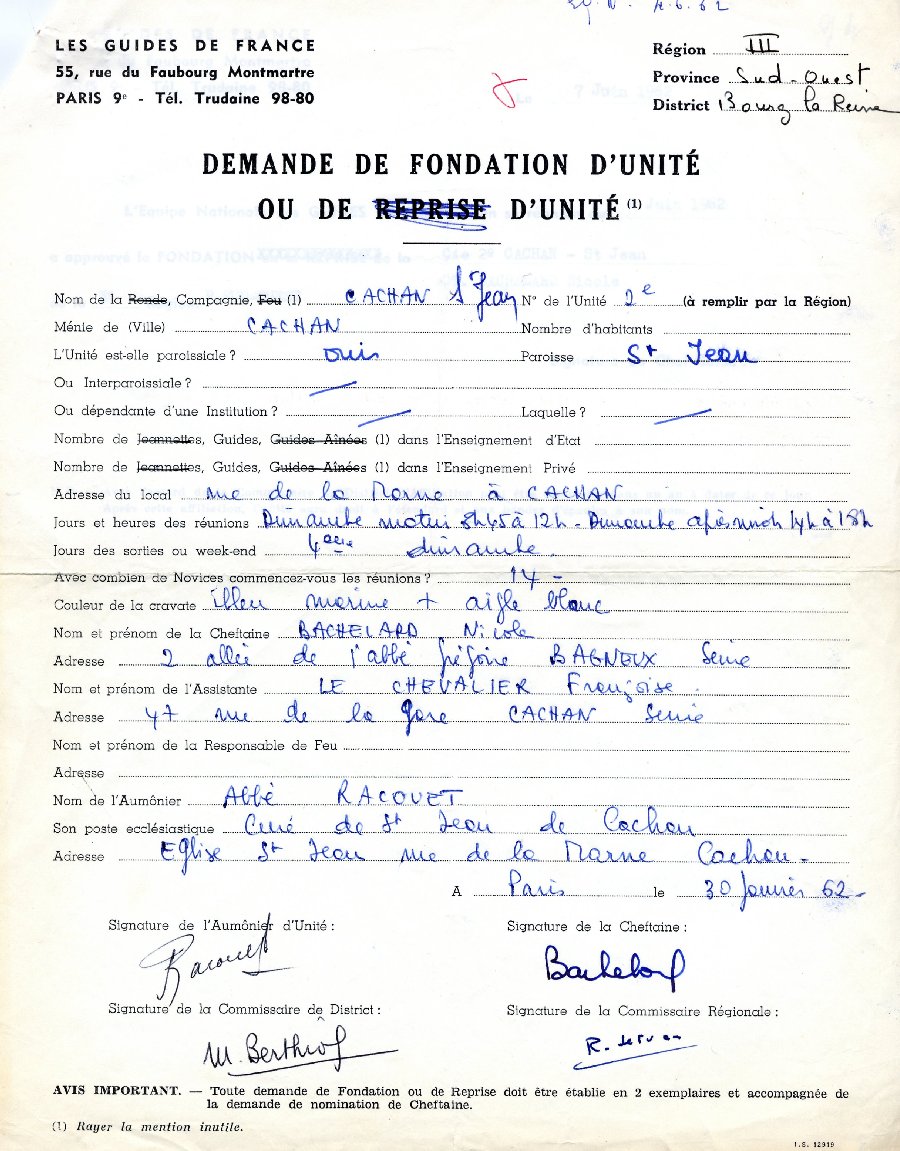 4.6.62
LES GUIDES DE FRANCE
55, rue du Faubourg Montmartre
PARIS 9e - Tél. Trudaine 98-80
Région III
Province Sud-Ouest
District Bourg la Reine
7 Juin
DEMANDE DE FONDATION D'UNITÉ
OU DE REPRISE D'UNITÉ (1)
Nom de la Ronde, Compagnie, Feu (1) CACHAN St Jean N° de l'Unité 2e (à remplir par la Région)
Ménie de (Ville) CACHAN Nombre d'habitants
L'Unité est-elle paroissiale ? oui Paroisse St Jean
Ou Interparoissiale ?
Ou dépendante d'une Institution ? Laquelle ?
Nombre de Jeannettes, Guides, Guides Aînées (1) dans l'Enseignement d'Etat
Nombre de Jeannettes, Guides, Guides Aînées (1) dans l'Enseignement Privé
Adresse du local rue de la Marne à CACHAN
Jours et heures des réunions Dimanche matin 8h45 à 12h - Dimanche après midi 14h à 18h
Jours des sorties ou week-end 4ème dimanche
Avec combien de Novices commencez-vous les réunions ? 14 -
Couleur de la cravate bleu marine + aigle blanc
Nom et prénom de la Cheftaine BACHELARD Nicole
Adresse 2 allée de l'abbé grégoire BAGNEUX Seine
Nom et prénom de l'Assistante LE CHEVALIER Françoise
Adresse 47 rue de la gare CACHAN Seine
Nom et prénom de la Responsable de Feu
Adresse
Nom de l'Aumônier Abbé RACOUET
Son poste ecclésiastique Curé de St Jean de Cachan
Adresse Eglise St Jean rue de la Marne Cachan -
A Paris le 30 Janvier 62 -
Signature de l'Aumônier d'Unité :
Signature de la Cheftaine :
Racouet
Bachelard
Signature de la Commissaire de District :
Signature de la Commissaire Régionale :
M. Berthiof
R.
AVIS IMPORTANT. — Toute demande de Fondation ou de Reprise doit être établie en 2 exemplaires et accompagnée de
la demande de nomination de Cheftaine.
(1) Rayer la mention inutile.
I.S. 12919